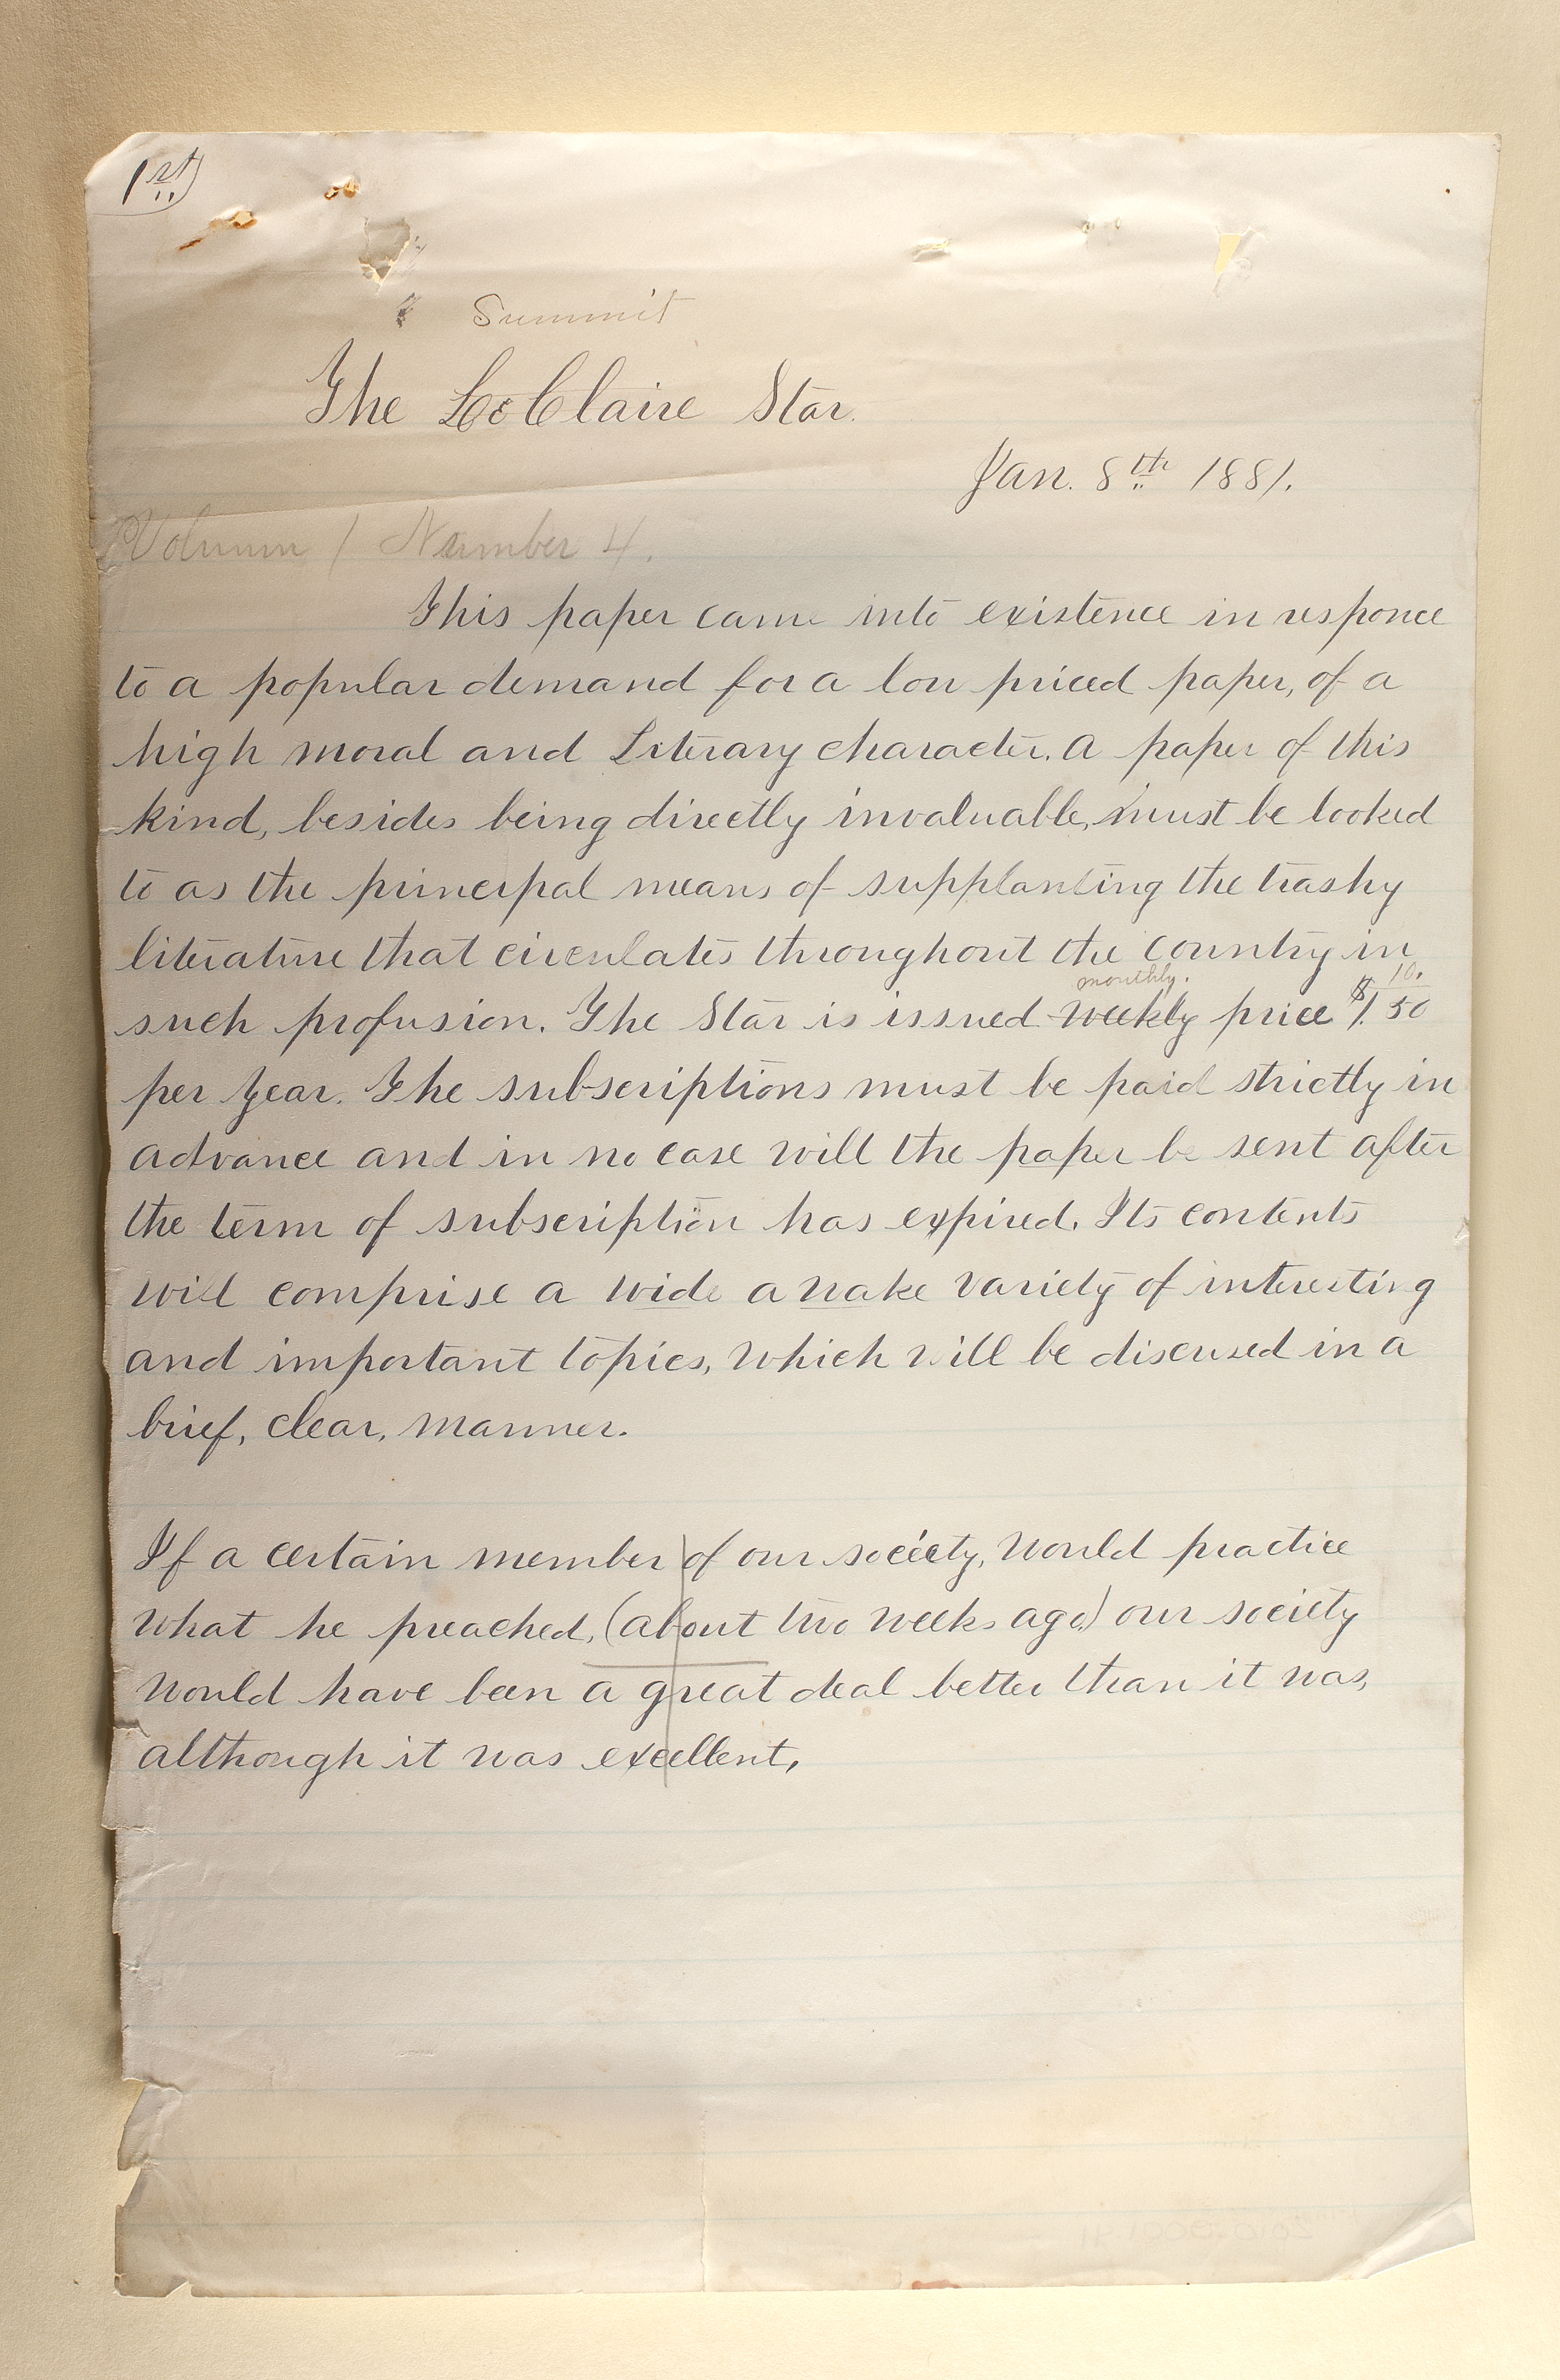 1st
Summit
The LeClaire Star.
Jan. 8th 1881.
Volumn 1 Number 4.
This paper came into existence in responce
to a popular demand for a low priced paper, of a
high moral and Literary character. A paper of this
kind, besides being directly invaluable, must be looked
to as the principal means of supplanting the trashy
literature that circulates throughout the country in
monthly. 10.
such profusion. The Star is issued weekly price $1.50
per year. The subscriptions must be paid strictly in
advance and in no case will the paper be sent after
the term of subscription has expired. Its contents
will comprise a wide awake variety of interesting
and important topics, which will be discused in a
brief, clear, manner.
If a certain member of our society, would practice
what he preached, (about two weeks ago) our society
would have been a great deal better than it was,
although it was excellent,